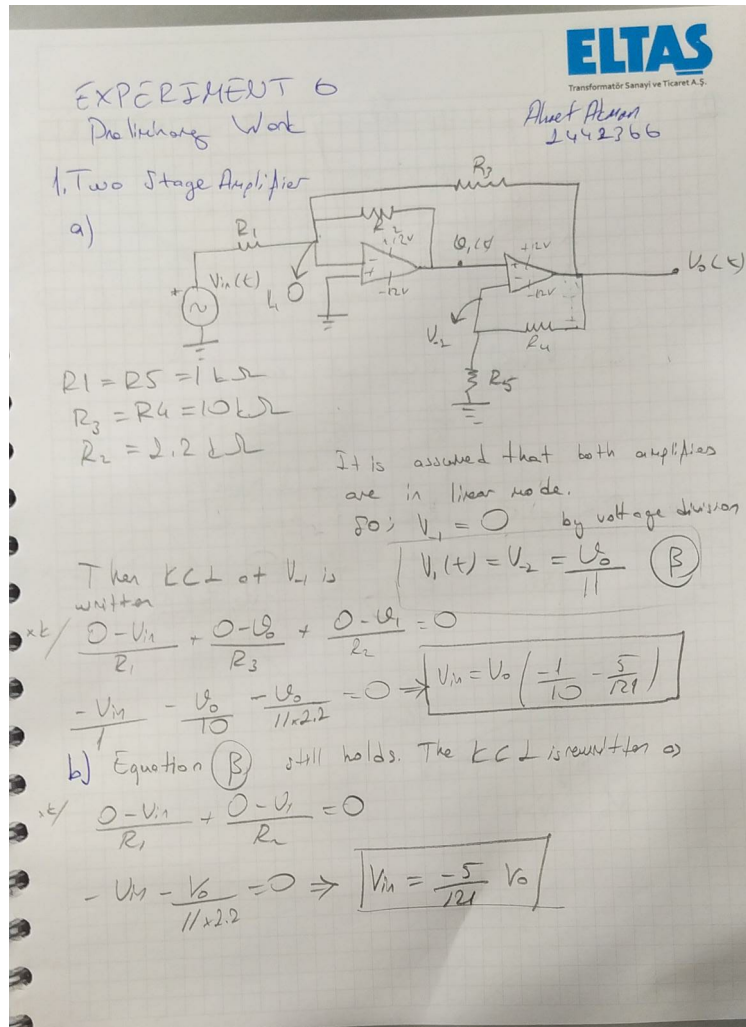 ELTAŞ
Transformatör Sanayi ve Ticaret A.Ş.
EXPERIMENT 6
Work
Ahmet Akman
2442366
1. Two Stage Amplifier
a)
R3
R2
R1
+12V
-12V
Vin(t)
0
+12V
-12V
Vo(t)
V-2
R4
R5
R1 = R5 = 1 kΩ
R3 = R4 = 10 kΩ
R2 = 2.2 kΩ
It is assumed that both amplifies
are in linear mode.
So; V-1 = 0 by voltage division
V1(t) = V-2 = Vo/11 (β)
Then KCL at V-1 is
written
(0-Vin)/R1 + (0-Vo)/R3 + (0-V1)/R2 = 0
-Vin/1 - Vo/10 - Vo/(11×2.2) = 0 ⇒ Vin = Vo (-1/10 - 5/121)
b) Equation (β) still holds. The KCL is rewritten as
(0-Vin)/R1 + (0-V1)/R2 = 0
-Vin - Vo/(11×2.2) = 0 ⇒ Vin = -5/121 Vo